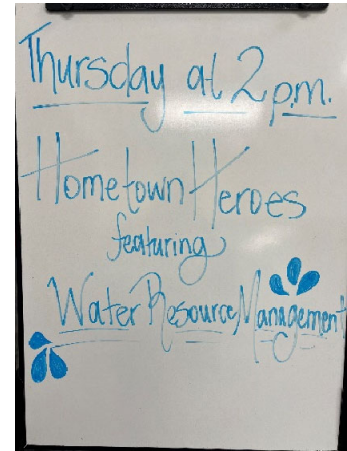 Thursday at 2 p.m.
Hometown Heroes
featuring
Water Resource Management